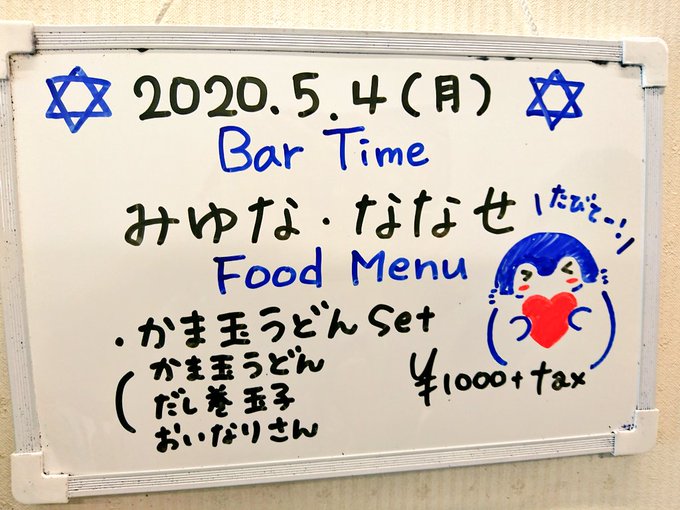 2020.5.4(月)
Bar Time
みゆな・ななせ
たびてー!
Food Menu
・かま玉うどんSet
かま玉うどん
だし巻玉子
おいなりさん
¥1000+tax